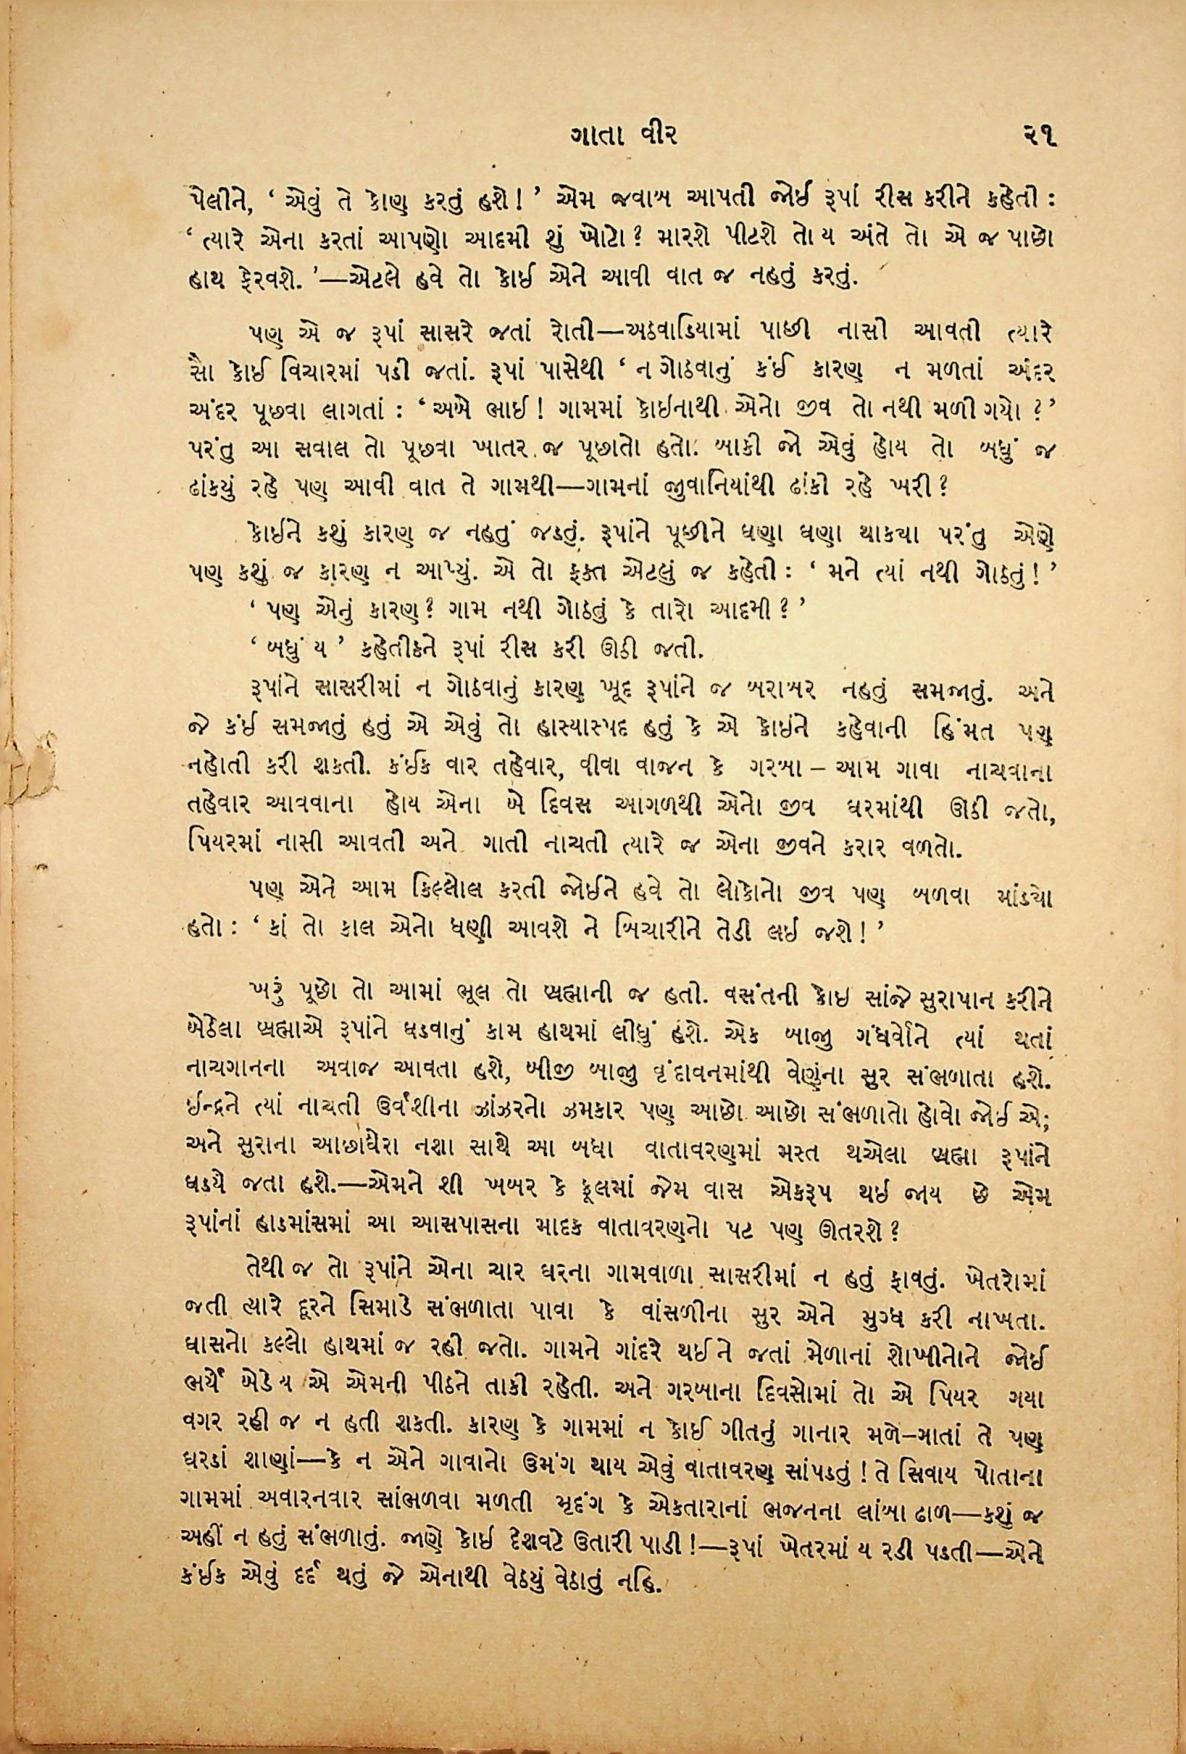 ગાતા વીર ૨૧
પેલીને, ‘ એવું તે કોણ કરતું હશે! ’ એમ જવાબ આપતી જોઈ રૂપાં રીસ કરીને કહેતી :
‘ ત્યારે એના કરતાં આપણો આદમી શું ખોટો? મારશે પીટશે તો ય અંતે તો એ જ પાછો
હાથ ફેરવશે. ’—એટલે હવે તો કોઈ એને આવી વાત જ નહતું કરતું.
પણ એ જ રૂપાં સાસરે જતાં રોતી—અઠવાડિયામાં પાછી નાસી આવતી ત્યારે
સૌ કોઈ વિચારમાં પડી જતાં. રૂપાં પાસેથી ‘ ન ગોઠવાનું કંઈ કારણ ન મળતાં અંદર
અંદર પૂછવા લાગતાં : ‘ અખે ભાઈ! ગામમાં કોઇનાથી એનો જીવ તો નથી મળી ગયો ?’
પરંતુ આ સવાલ તો પૂછવા ખાતર જ પૂછાતો હતો. બાકી જો એવું હોય તો બધું જ
ઢાંકયું રહે પણ આવી વાત તે ગામથી—ગામનાં જુવાનિયાંથી ઢાંકી રહે ખરી?
કોઈને કશું કારણ જ નહતું જડતું. રૂપાંને પૂછીને ઘણા ઘણા થાક્યા પરંતુ એણે
પણ કશું જ કારણ ન આપ્યું. એ તો ફક્ત એટલું જ કહેતી : ‘ મને ત્યાં નથી ગોઠતું! ’
‘ પણ એનું કારણ? ગામ નથી ગોઠતું કે તારો આદમી? ’
‘ બધું ય ’ કહેતીકને રૂપાં રીસ કરી ઊઠી જતી.
રૂપાંને સાસરીમાં ન ગોઠવાનું કારણ ખૂદ રૂપાંને જ બરાબર નહતું સમજાતું. અને
જે કંઈ સમજાતું હતું એ એવું તો હાસ્યાસ્પદ હતું કે એ કોઇને કહેવાની હિંમત પણ
નહોતી કરી શકતી. કંઈક વાર તહેવાર, વીવા વાજન કે ગરબા – આમ ગાવા નાચવાના
તહેવાર આવવાના હોય એના બે દિવસ આગળથી એનો જીવ ઘરમાંથી ઊઠી જતો,
પિયરમાં નાસી આવતી અને ગાતી નાચતી ત્યારે જ એના જીવને કરાર વળતો.
પણ એને આમ કિલ્લોલ કરતી જોઈને હવે તો લોકોનો જીવ પણ બળવા માંડ્યો
હતો : ‘ કાં તો કાલ એનો ધણી આવશે ને બિચારીને તેડી લઈ જશે! ’
ખરું પૂછો તો આમાં ભૂલ તો બ્રહ્માની જ હતી. વસંતની કોઇ સાંજે સુરાપાન કરીને
બેઠેલા બ્રહ્માએ રૂપાંને ઘડવાનું કામ હાથમાં લીધું હશે. એક બાજુ ગંધર્વોને ત્યાં થતાં
નાચગાનના અવાજ આવતા હશે, બીજી બાજુ વૃંદાવનમાંથી વેણુંના સુર સંભળાતા હશે.
ઈન્દ્રને ત્યાં નાચતી ઉર્વશીના ઝાંઝરનો ઝમકાર પણ આછો આછો સંભળાતો હોવો જોઈ એ;
અને સુરાના આછાઘેરા નશા સાથે આ બધા વાતાવરણમાં મસ્ત થએલા બ્રહ્મા રૂપાંને
ઘડયે જતા હશે.—એમને શી ખબર કે ફૂલમાં જેમ વાસ એકરૂપ થઈ જાય છે એમ
રૂપાંનાં હાડમાંસમાં આ આસપાસના માદક વાતાવરણનો પટ પણ ઊતરશે?
તેથી જ તો રૂપાંને એના ચાર ઘરના ગામવાળા સાસરીમાં ન હતું ફાવતું. ખેતરોમાં
જતી ત્યારે દૂરને સિમાડે સંભળાતા પાવા કે વાંસળીના સુર એને મુગ્ધ કરી નાખતા.
ઘાસનો કલ્લો હાથમાં જ રહી જતો. ગામને ગાંદરે થઈને જતાં મેળાનાં શોખીનોને જોઈ
ભર્યે બેડે ય એ એમની પીઠને તાકી રહેતી. અને ગરબાના દિવસોમાં તો એ પિયર ગયા
વગર રહી જ ન હતી શકતી. કારણ કે ગામમાં ન કોઈ ગીતનું ગાનાર મળે–ગાતાં તે પણ
ઘરડાં શાણાં—કે ન એને ગાવાનો ઉમંગ થાય એવું વાતાવરણ સાંપડતું! તે સિવાય પોતાના
ગામમાં અવારનવાર સાંભળવા મળતી મૃદંગ કે એકતારાનાં ભજનના લાંબા ઢાળ—કશું જ
અહીં ન હતું સંભળાતું. જાણે કોઇ દેશવટે ઉતારી પાડી!—રૂપાં ખેતરમાં ય રડી પડતી—એને
કંઈક એવું દર્દ થતું જે એનાથી વેઠયું વેઠાતું નહિ.